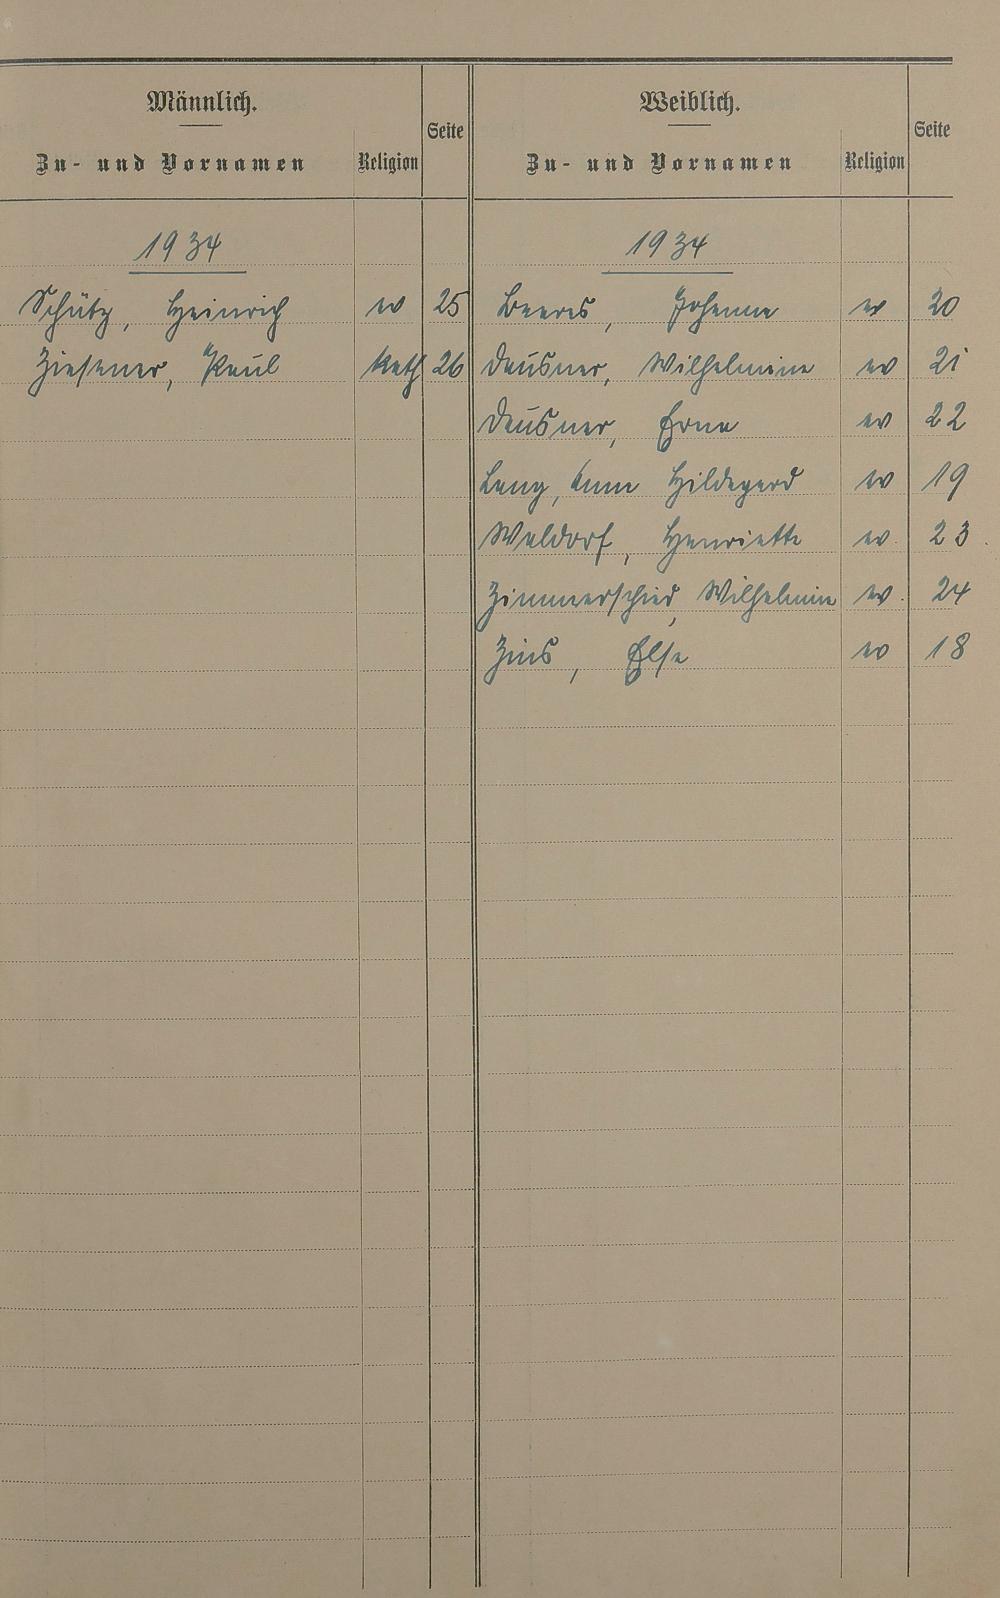 Männlich.
Zu- und Vornamen Religion Seite
1934
Schütz, Heinrich ev 25
Ziesener, Paul kath 26
Weiblich.
Zu- und Vornamen Religion Seite
1934
Johanna ev 20
Deusner, Wilhelmine ev 21
Deusner, Erna ev 22
Lang, Anna Hildegard ev 19
Waldorf, Henriette ev. 23.
Zimmerschied, Wilhelmine ev. 24
Zins, Else ev 18